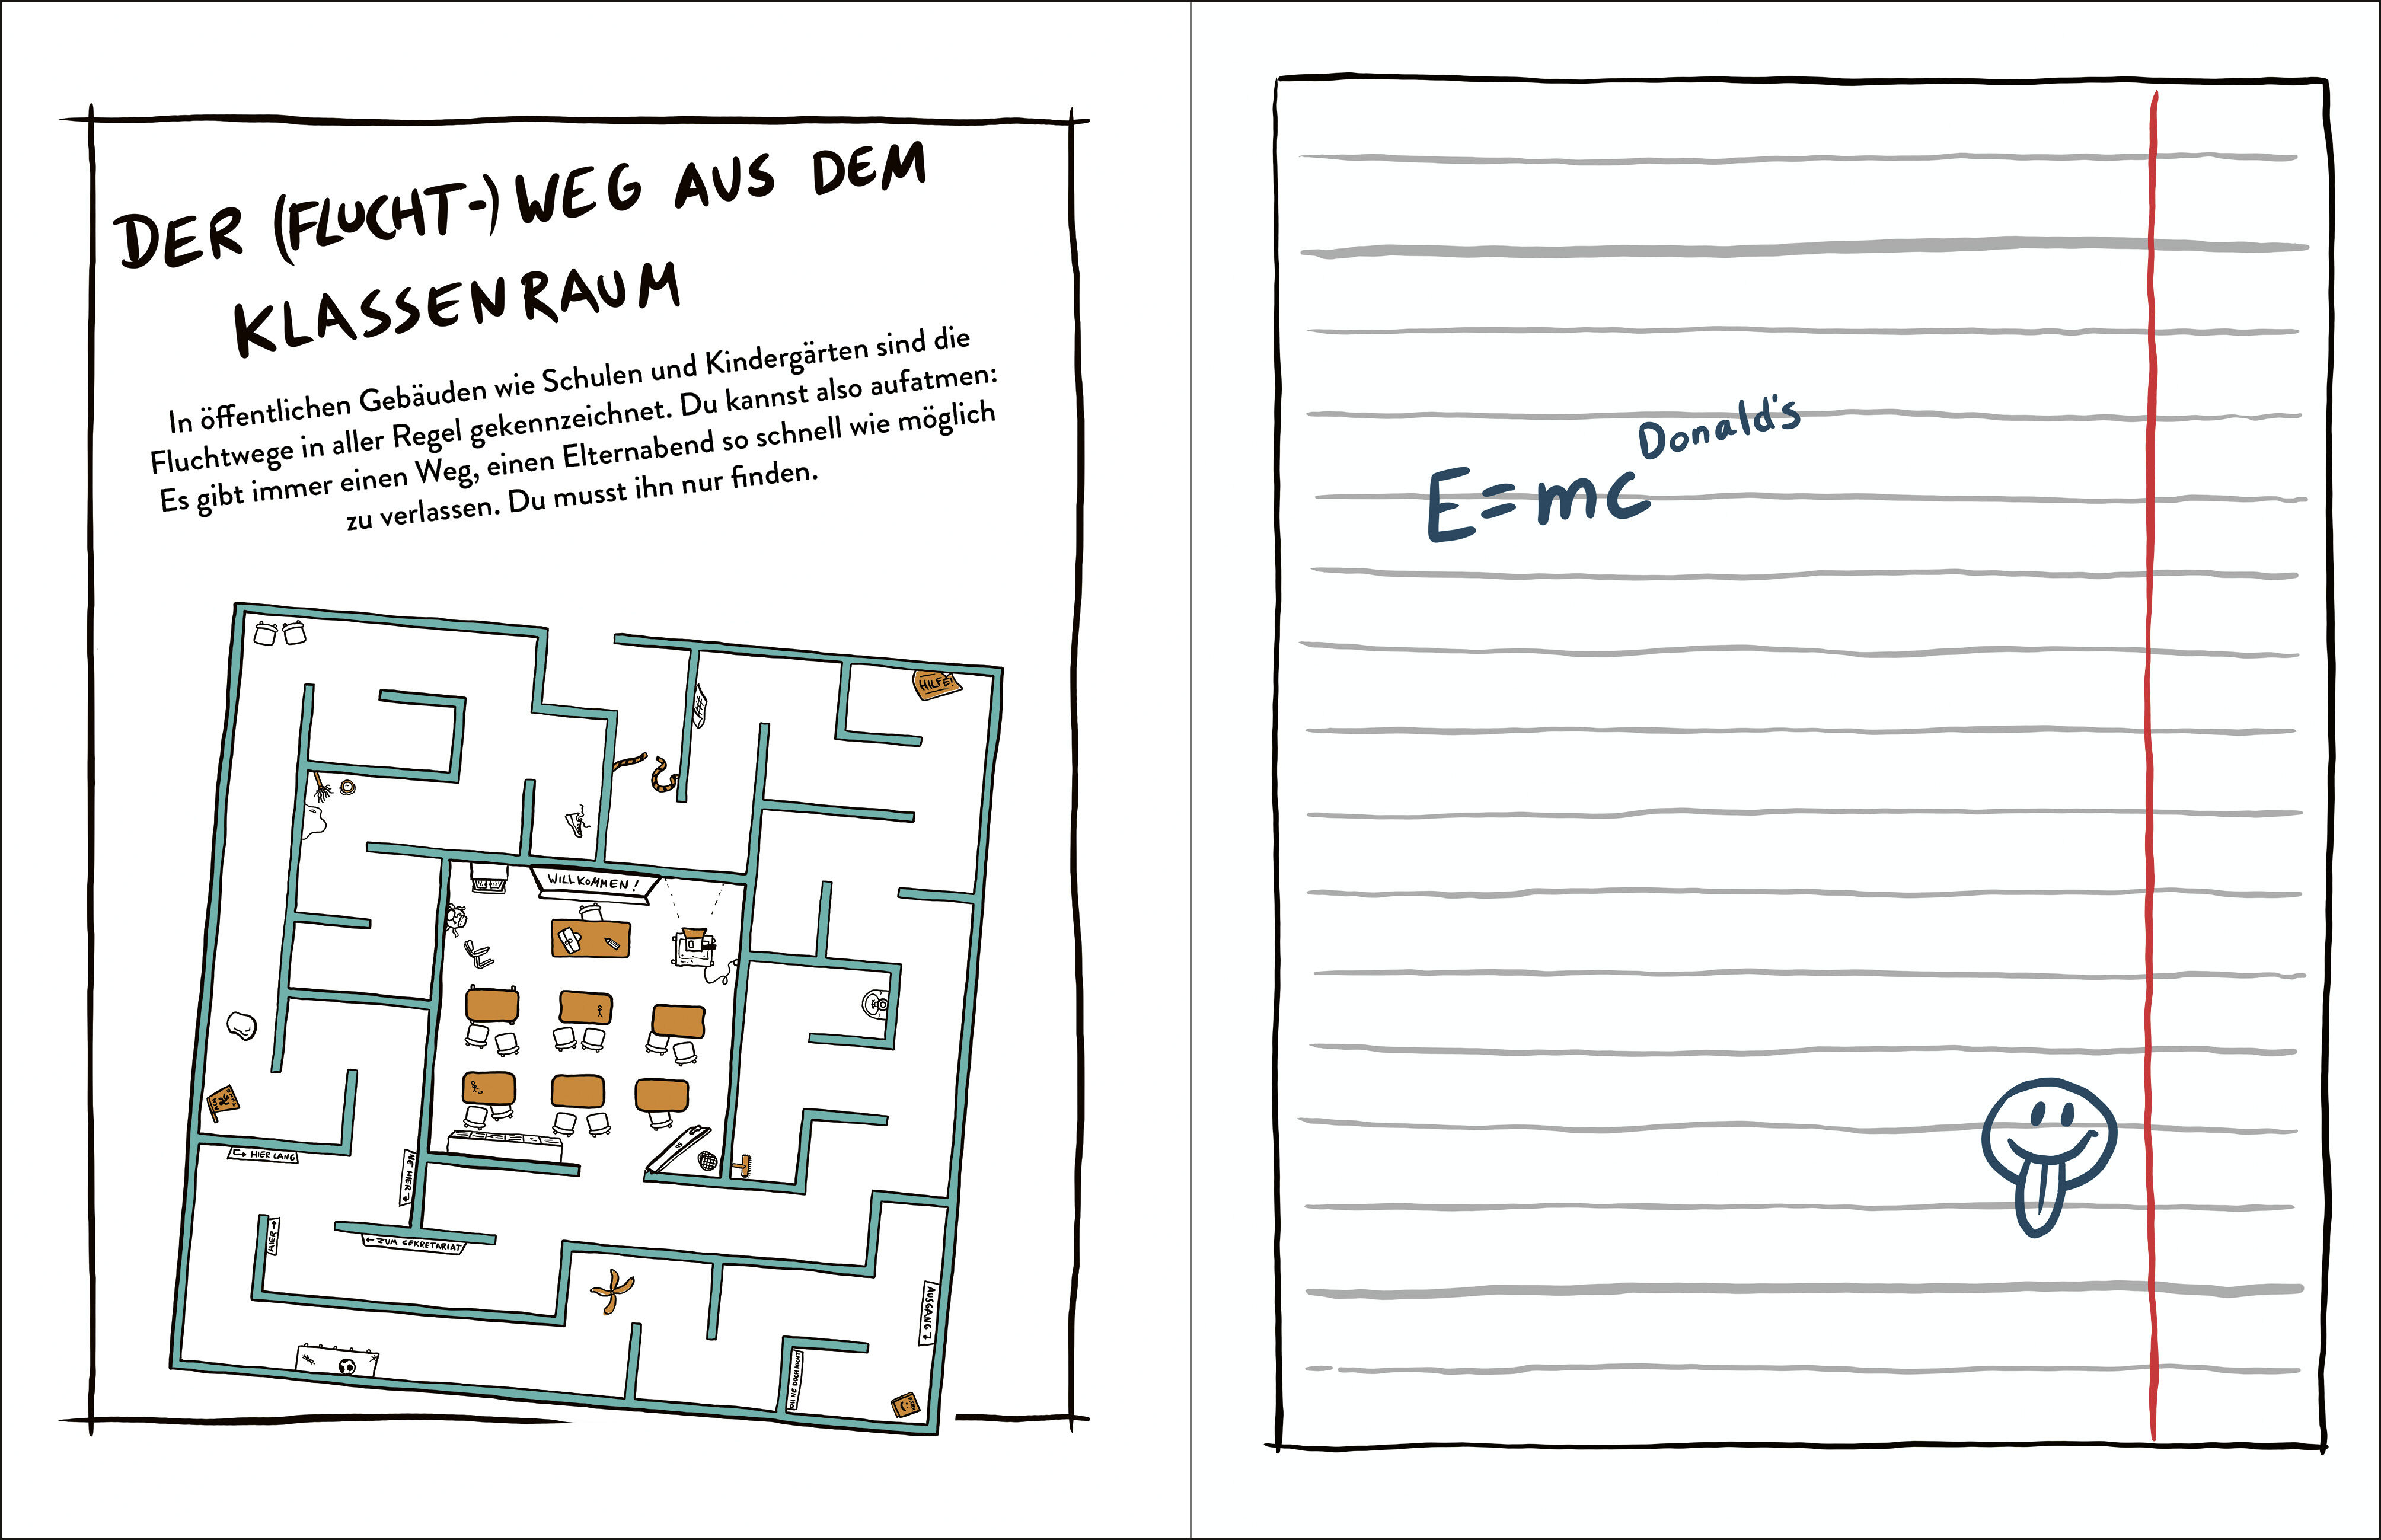 DER (FLUCHT-) WEG AUS DEM
KLASSENRAUM
In öffentlichen Gebäuden wie Schulen und Kindergärten sind die
Fluchtwege in aller Regel gekennzeichnet. Du kannst also aufatmen:
Es gibt immer einen Weg, einen Elternabend so schnell wie möglich
zu verlassen. Du musst ihn nur finden.
HILFE!
WILLKOMMEN!
HIER LANG
NE HIER
HIER
← ZUM SEKRETARIAT
AUSGANG
NE DOCH NICHT
Donald's
E=mc